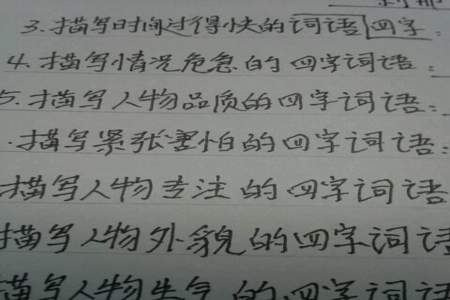 3.描写时间过得快的词语四字:
4.描写情况危急的四字词语:
5.描写人物品质的四字词语:
.描写紧张害怕的四字词语:
描写人物专注的四字词语
描写人物外貌的四字词语
描写人物生气的四字词语